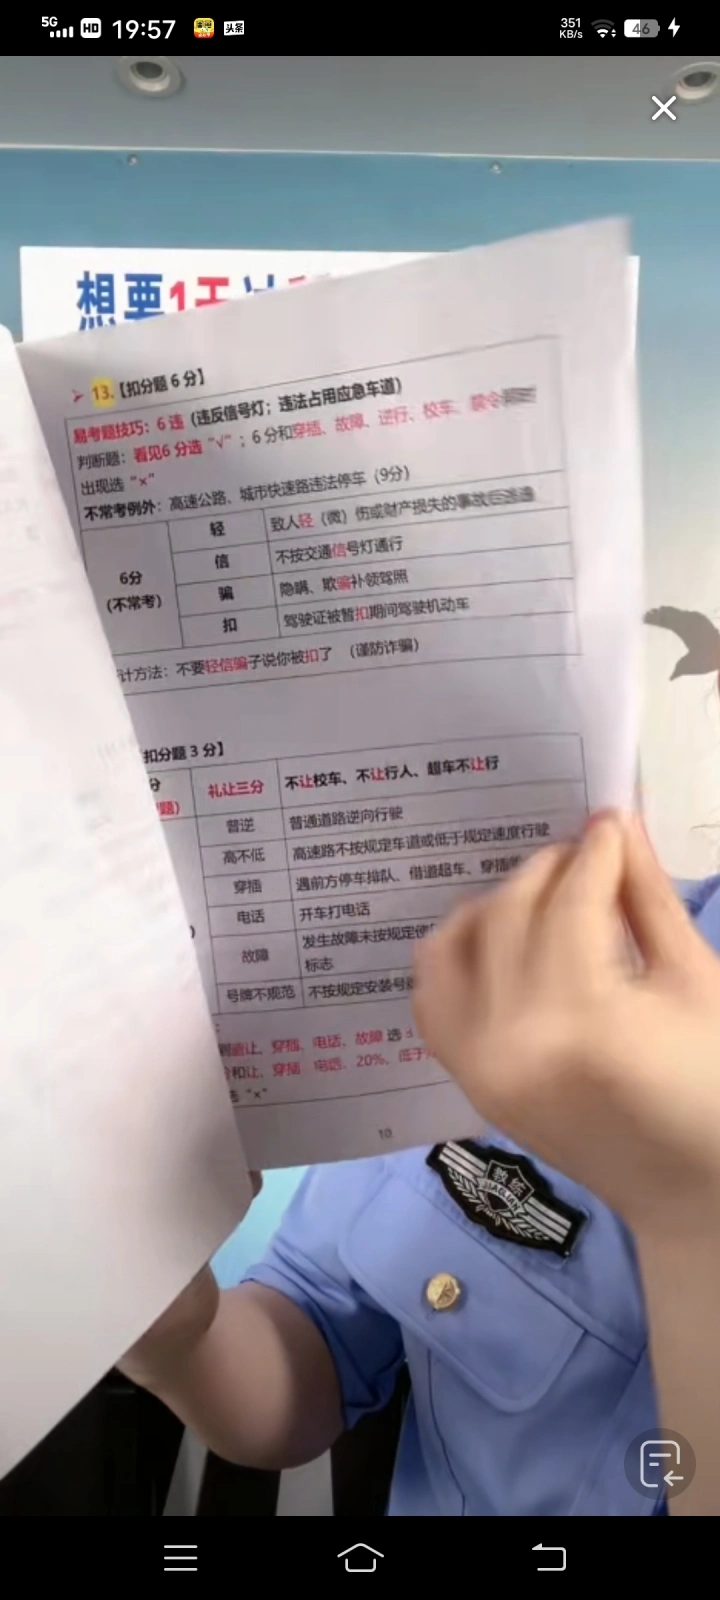 5G HD 19:57 头条 351 KB/s 46
想要1天
13.【扣分题 6 分】
易考题技巧：6 违（违反信号灯；违法占用应急车道）
判断题：看见6 分选 “√”；6 分和穿插、故障、逆行、校车、
出现选 “×”
不常考例外：高速公路、城市快速路违法停车（9分）
6分
（不常考）
轻 致人轻（微）伤或财产损失的事故后逃逸
信 不按交通信号灯通行
骗 隐瞒、欺骗补领驾照
扣 驾驶证被暂扣期间驾驶机动车
计方法：不要轻信骗子说你被扣了 （谨防诈骗）
扣分题 3 分】
分
题）
礼让三分 不让校车、不让行人、超车不让行
普逆 普通道路逆向行驶
高不低 高速路不按规定车道或低于规定速度行驶
穿插 遇前方停车排队、借道超车、穿插
电话 开车打电话
故障 发生故障未按规定使
标志
号牌不规范 不按规定安装号
让、穿插、电话、故障 选 3
和让、穿插 电话、20%、低于
选 “×”
10
教练
JIAOLIAN